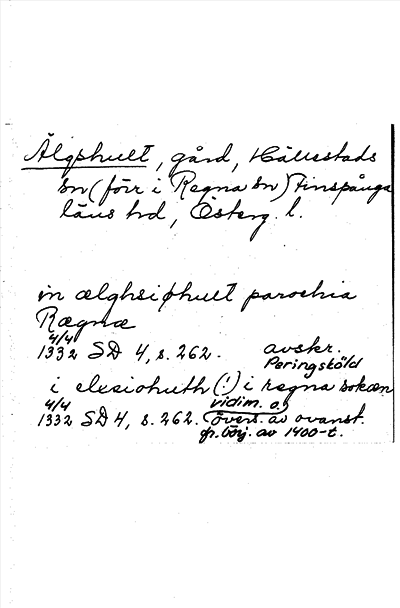 Älgshult, gård, Hällestads
sn (förr i Regna sn) Finspånga
läns hd, Österg. l.
in ælghsiøhult parochia
Rægnæ
4/4
1332 SD 4, s. 262. avskr.
Peringsköld
i elxiohuth (!) i regna sokæn
4/4 vidim. o.
1332 SD 4, s. 262. övers. av ovanst.
fr. börj. av 1400-t.